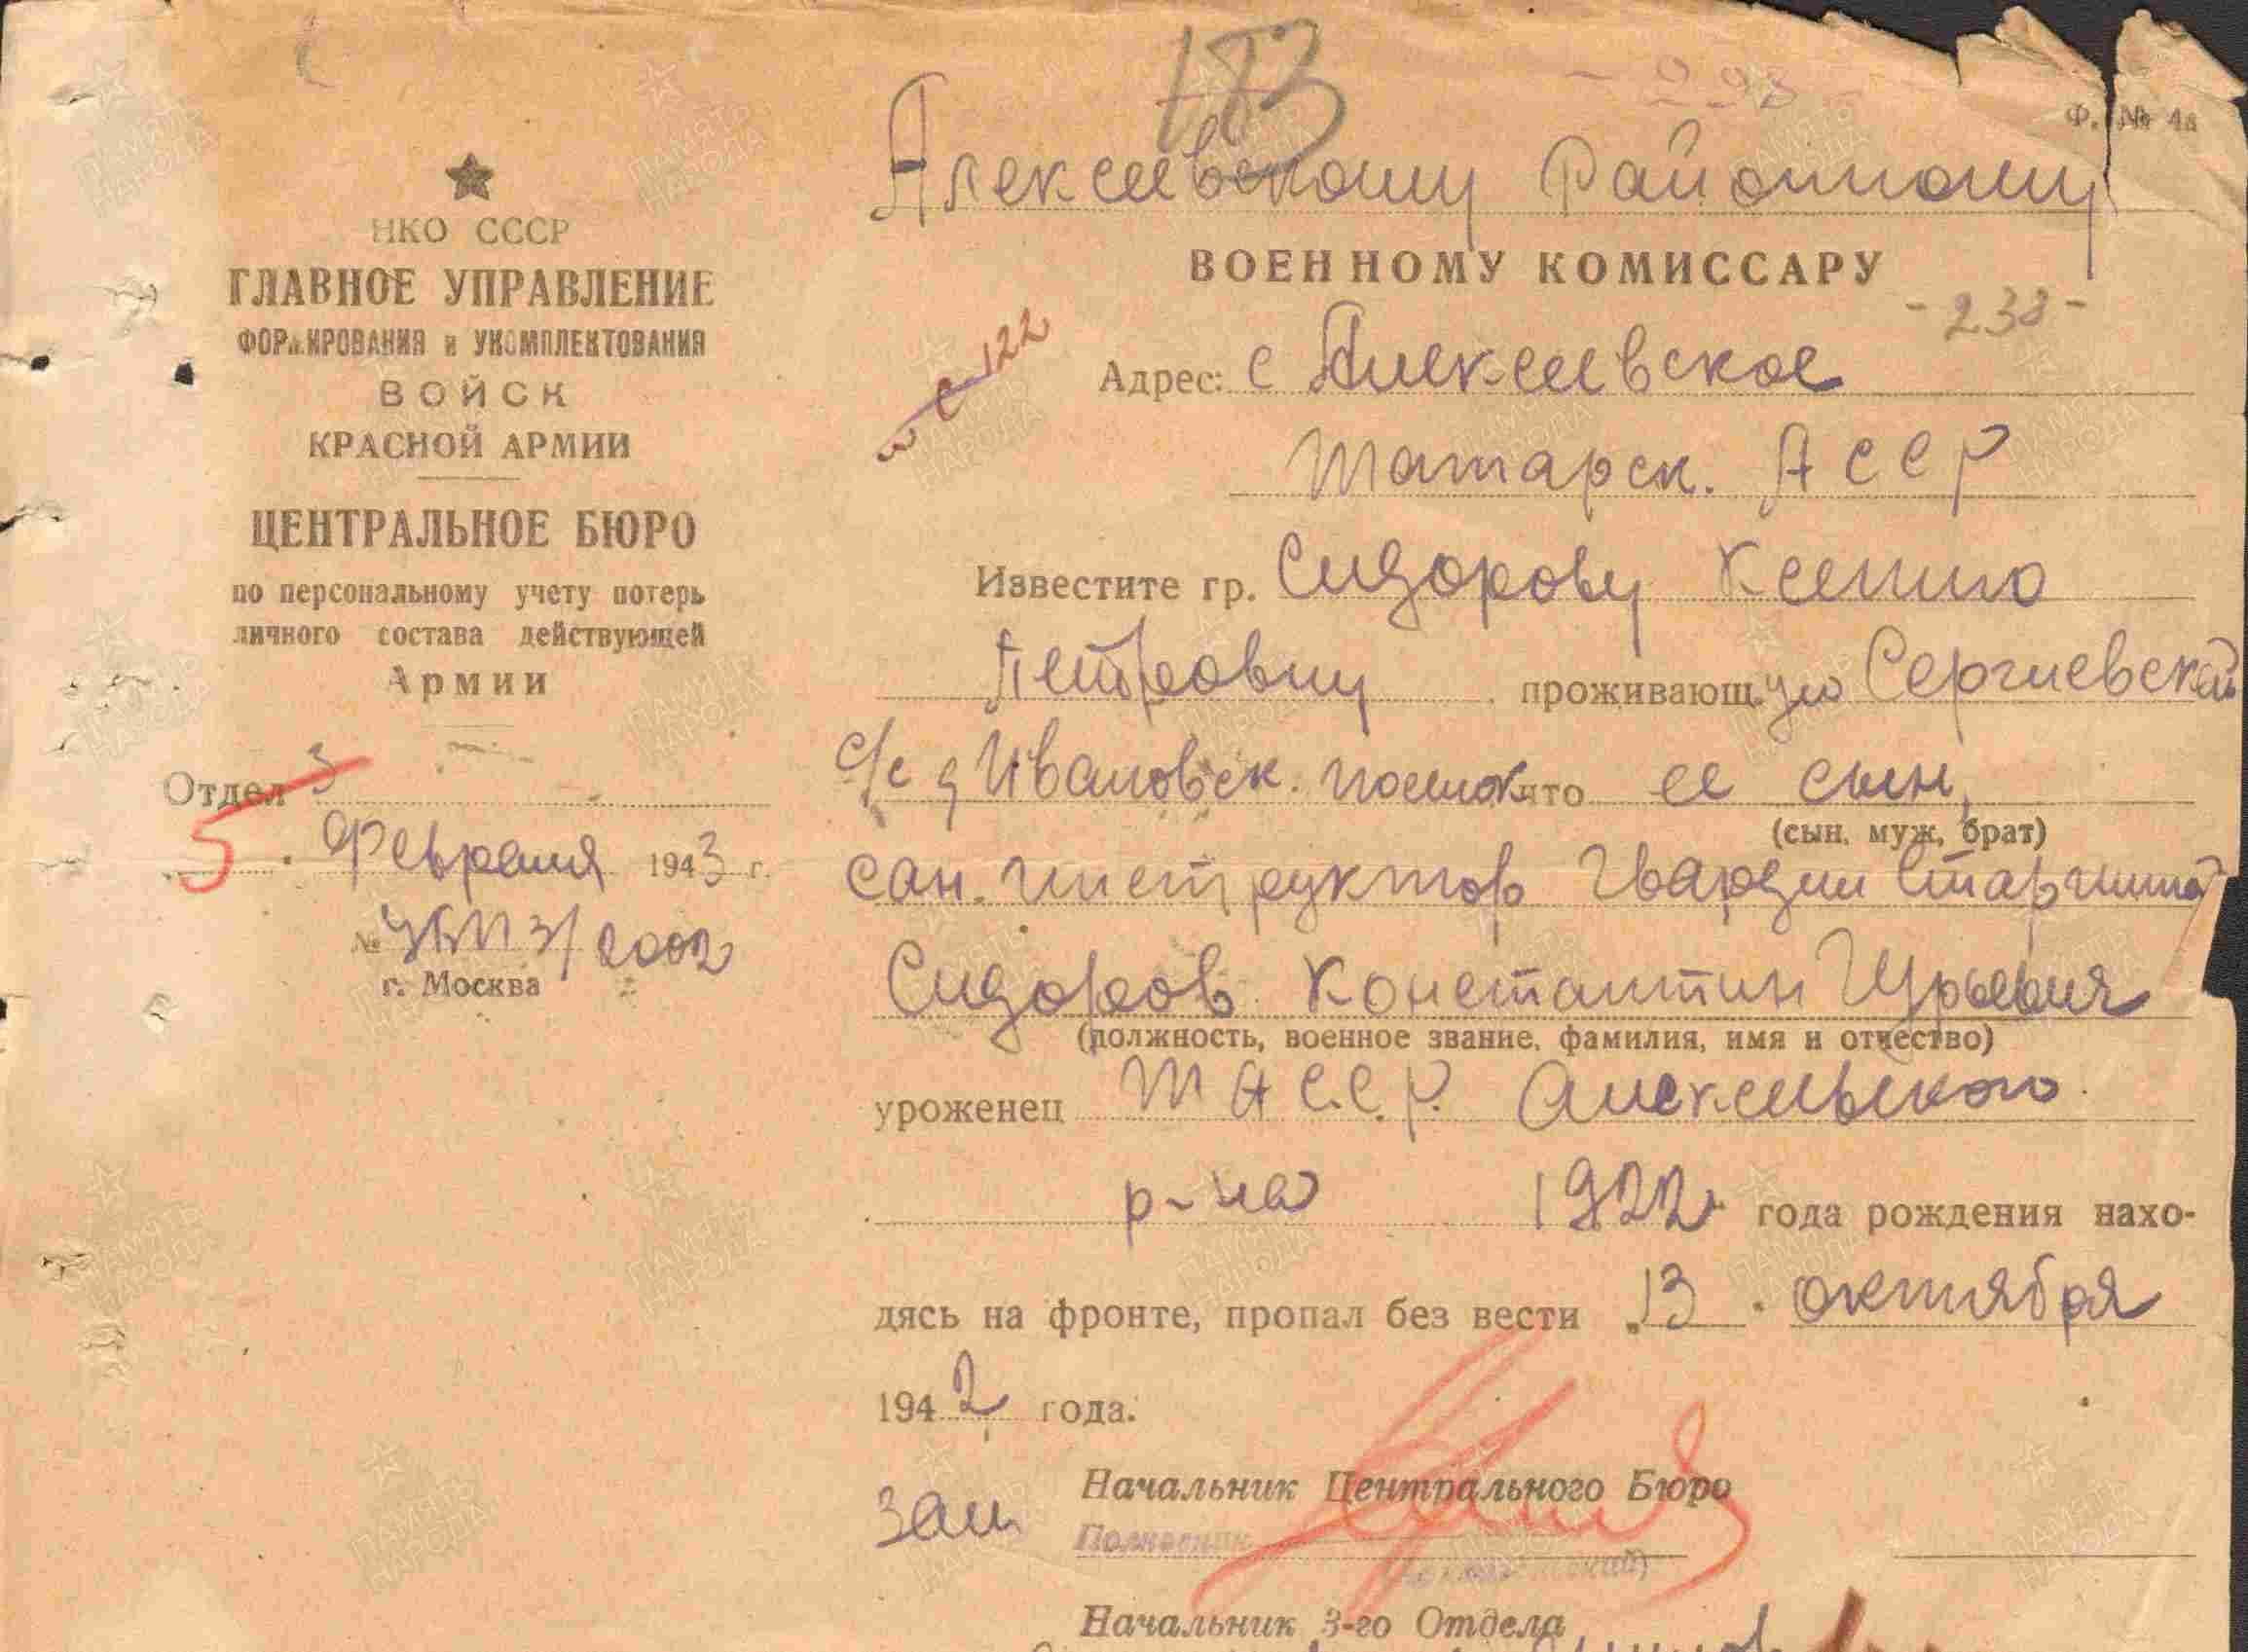 183
- 298 -
Ф. № 4а
Алексеевскому Районному
ВОЕННОМУ КОМИССАРУ
- 238 -
с 122
Адрес: с Алексеевское
Татарск. АССР
Известите гр. Сидорову Ксению
Петровну проживающ. ую Сергиевской
с/с д Ивановск. поселок что ее сын,
(сын, муж, брат)
сан. инструктор гвардии старшина
Сидоров Константин Юрьевич
(должность, военное звание, фамилия, имя и отчество)
уроженец ТАССР Алексеевского
р-на 1922 года рождения нахо-
дясь на фронте, пропал без вести 13 октября
1942 года.
Зам Начальник Центрального Бюро
Полковник
Начальник 3-го Отдела
НКО СССР
ГЛАВНОЕ УПРАВЛЕНИЕ
ФОРМИРОВАНИЯ и УКОМПЛЕКТОВАНИЯ
ВОЙСК
КРАСНОЙ АРМИИ
ЦЕНТРАЛЬНОЕ БЮРО
по персональному учету потерь
личного состава действующей
Армии
Отдел 3
5 Февраля 1943 г.
№ /2002
г. Москва
ПАМЯТЬ
НАРОДА